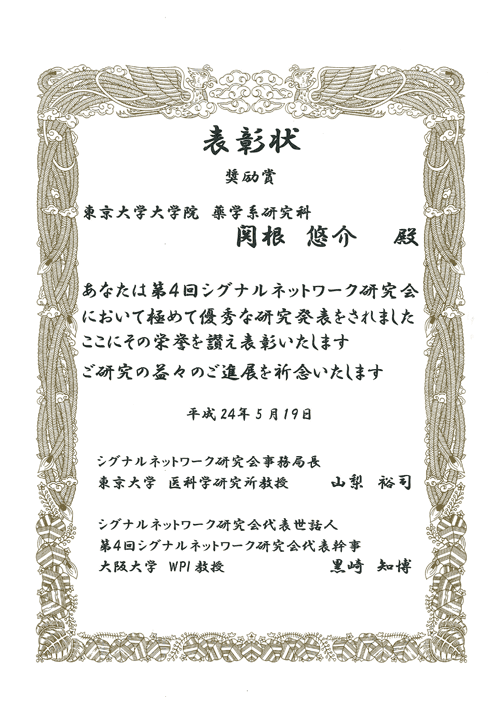 表彰状
奨励賞
東京大学大学院 薬学系研究科
関根 悠介 殿
あなたは第4回シグナルネットワーク研究会
において極めて優秀な研究発表をされました
ここにその栄誉を讃え表彰いたします
ご研究の益々のご進展を祈念いたします
平成24年5月19日
シグナルネットワーク研究会事務局長
東京大学 医科学研究所教授 山梨 裕司
シグナルネットワーク研究会代表世話人
第4回シグナルネットワーク研究会代表幹事
大阪大学 WPI教授 黒崎 知博